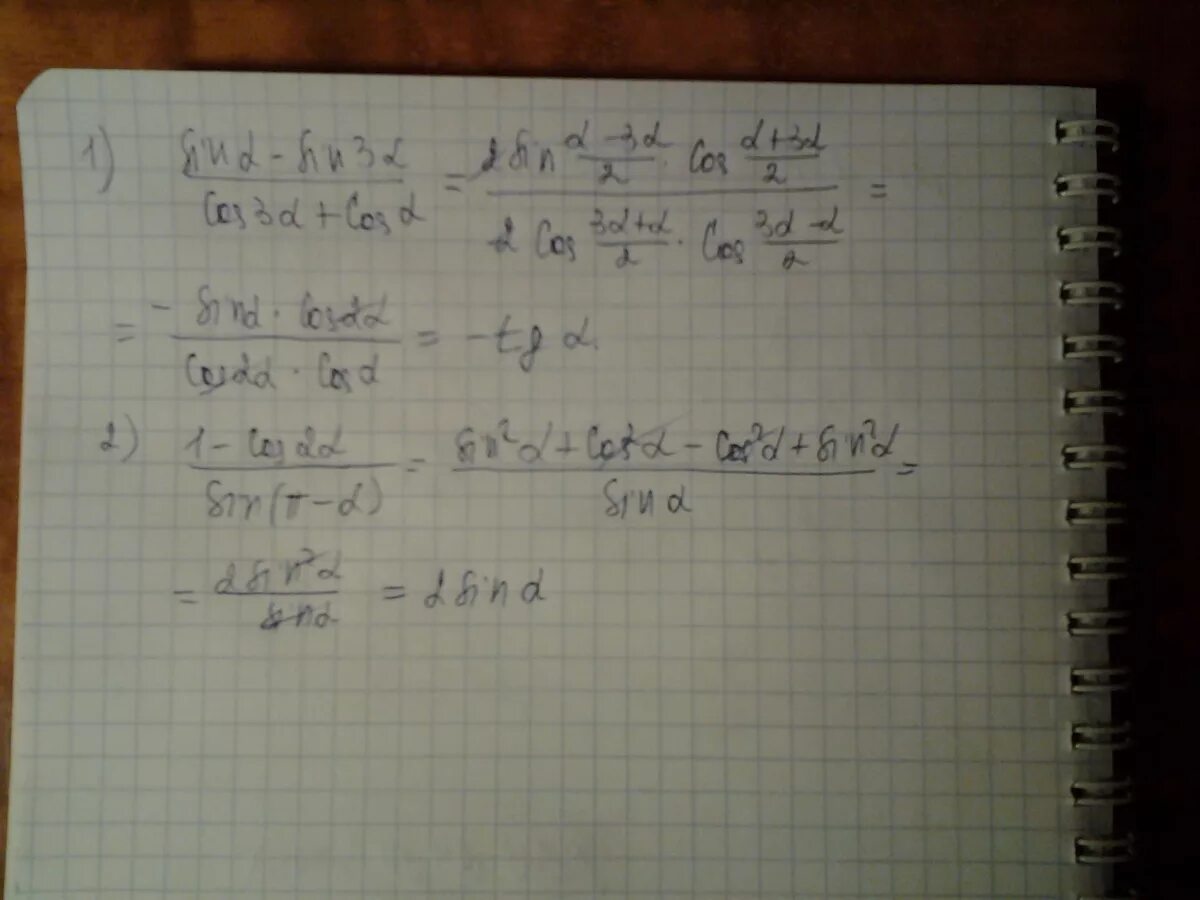 1) (sin α − sin 3α)/(cos 3α + cos α) = (2 sin (α − 3α)/2 · cos (α + 3α)/2)/(2 cos (3α + α)/2 · cos (3α − α)/2) =
= (− sin α · cos 2α)/(cos 2α · cos α) = − tg α.
2) (1 − cos 2α)/(sin(π − α)) = (sin² α + cos² α − cos² α + sin² α)/(sin α) =
= (2 sin² α)/(sin α) = 2 sin α